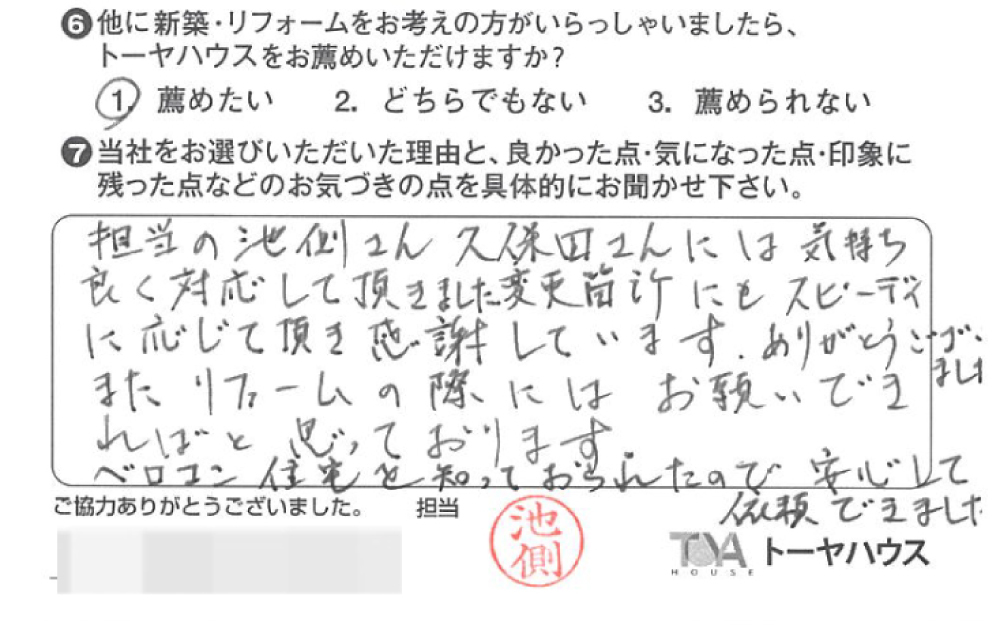 ❻他に新築・リフォームをお考えの方がいらっしゃいましたら、
トーヤハウスをお薦めいただけますか?
1. 薦めたい 2. どちらでもない 3. 薦められない
❼当社をお選びいただいた理由と、良かった点・気になった点・印象に
残った点などのお気づきの点を具体的にお聞かせ下さい。
担当の池側さん 久保田さんには気持ち
良く対応して頂きました変更箇所にもスピーディ
に応じて頂き感謝しています。ありがとうござい
ました
また リフォームの際には お願いでき
ればと思っております。
ベロコン住宅と知っておられたので 安心して
依頼できました
ご協力ありがとうございました。 担当
池側
TOYA HOUSE トーヤハウス